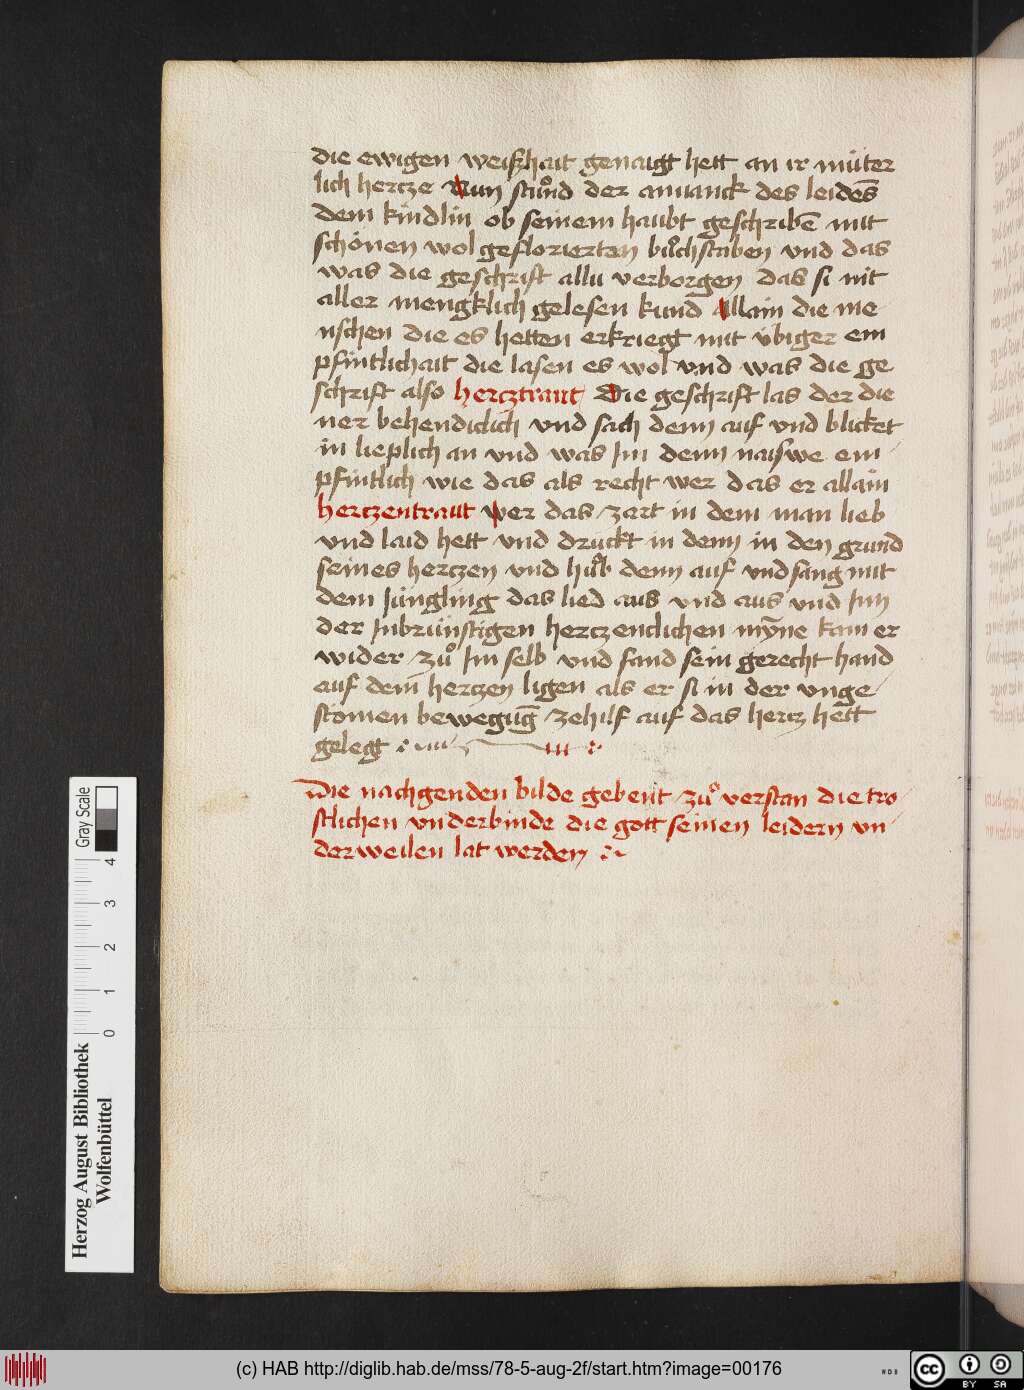 die ewigen weiſzhait genaigt hett an ir müter
lich hertze Nun ſtuͦnd der anuanck des leidēs
dem kindlin ob ſeinem haubt geſchribē mit
ſchönen wol geflorierten buͦchſtaben vnd das
was die geſchrift allu verborgen das ſi nit
aller mengklich geleſen kund Allain die me
nſchen die es hetten erkriegt mit übiger em
pfintlichait die laſen es wol vnd was die ge
ſchrift alſo hercztraut Die geſchrift las der die
ner behendiclich vnd ſach denn auf vnd blicket
in lieplich an vnd was Im denn naiſwe em
pfintlich wie das als recht wer das er allain
herczentraut wer das zart in dem man lieb
vnd laid hett vnd druckt in denn in den grund
ſeines herczen vnd huͦb denn auf vnd ſang mit
dem Jüngling das lied aus vnd aus vnd Inn
der Inbrünſtigen herczenclichen mỹne kam er
wider zuͦ Im ſelb vnd fand ſein gerecht hand
auf dem herczen ligen als er ſi in der vnge
ſtomen bewegūg zehilf auf das hercz hett
gelegt
Die nachgenden bilde gebent zuͦ verſtan die tro
ſtlichen vnderbinde die gott ſeinen leidern vn
der weilen lat werden
Gray Scale
4
3
2
1
0
Herzog August Bibliothek
Wolfenbüttel
(c) HAB http://diglib.hab.de/mss/78-5-aug-2f/start.htm?image=00176
WDB
cc
BY SA